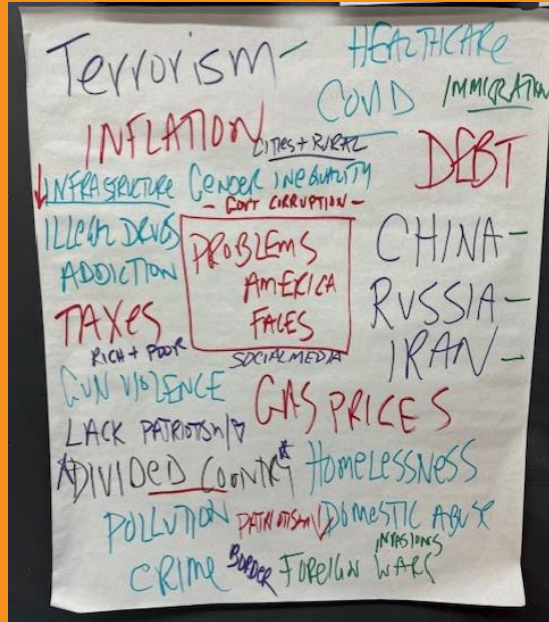 Terrorism-
HEALTHCARe
COVID
IMMIGRATION
INFLATION
CITIES + RURAL
DEBT
INFRASTRUCTURE
GENDER INEQUALITY
- GOVT CORRUPTION -
ILLEGAL DRUGS
ADDICTION
PROBLEMS
AMERICA
FACES
CHINA-
RUSSIA-
IRAN-
TAXES
RICH + POOR
SOCIAL MEDIA
GUN VIOLENCE
GAS PRICES
LACK PATRIOTSM
*DIVIDED COUNTRY*
HOMELESSNESS
POLLUTION
PATRIOTISM
DOMESTIC ABUSE
CRIMe
BORDER
FOREIGN WARS
INVASIONS